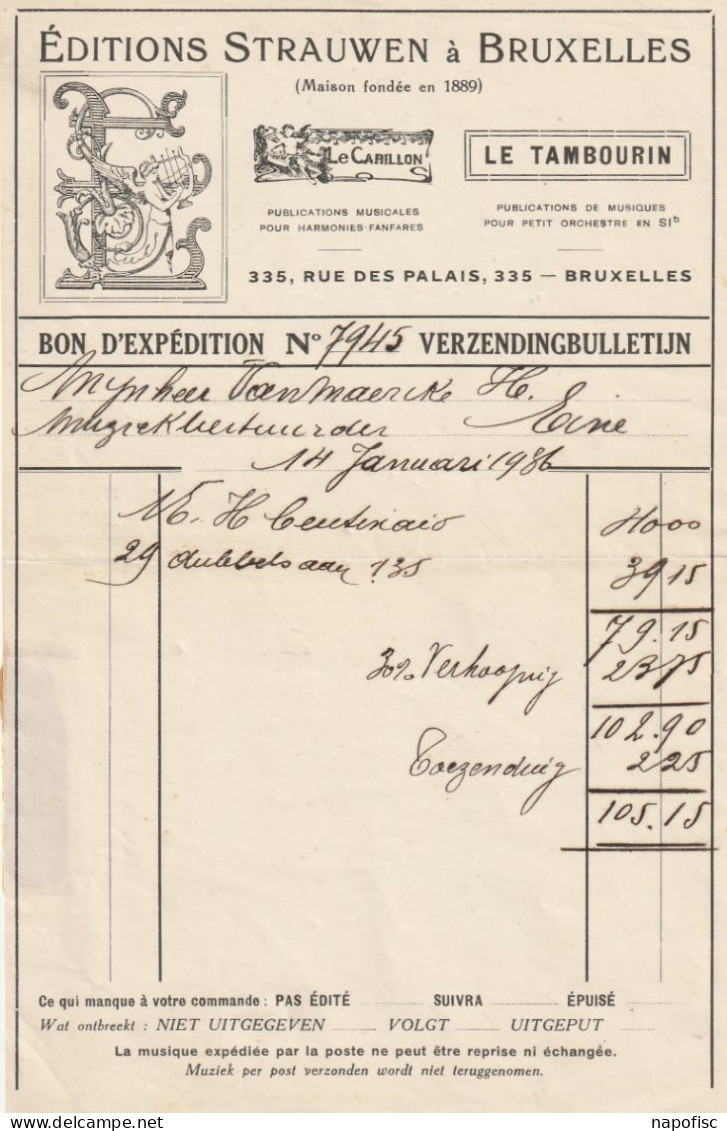 ÉDITIONS STRAUWEN à BRUXELLES
(Maison fondée en 1889)
LE CARILLON
LE TAMBOURIN
PUBLICATIONS MUSICALES
POUR HARMONIES-FANFARES
PUBLICATIONS DE MUSIQUES
POUR PETIT ORCHESTRE EN SIb
335, RUE DES PALAIS, 335 — BRUXELLES
BON D'EXPÉDITION No 7945 VERZENDINGBULLETIJN
Mijnheer VanMaercke H.
Muziekbestuurder Eine
14 Januari 1936
H Centenaio 4000
29 dubbels aan 135 3915
79.15
30% Verhooging 2375
102.90
Toezending 225
105.15
Ce qui manque à votre commande : PAS ÉDITÉ SUIVRA ÉPUISÉ
Wat ontbreekt : NIET UITGEGEVEN VOLGT UITGEPUT
La musique expédiée par la poste ne peut être reprise ni échangée.
Muziek per post verzonden wordt niet teruggenomen.
napofisc